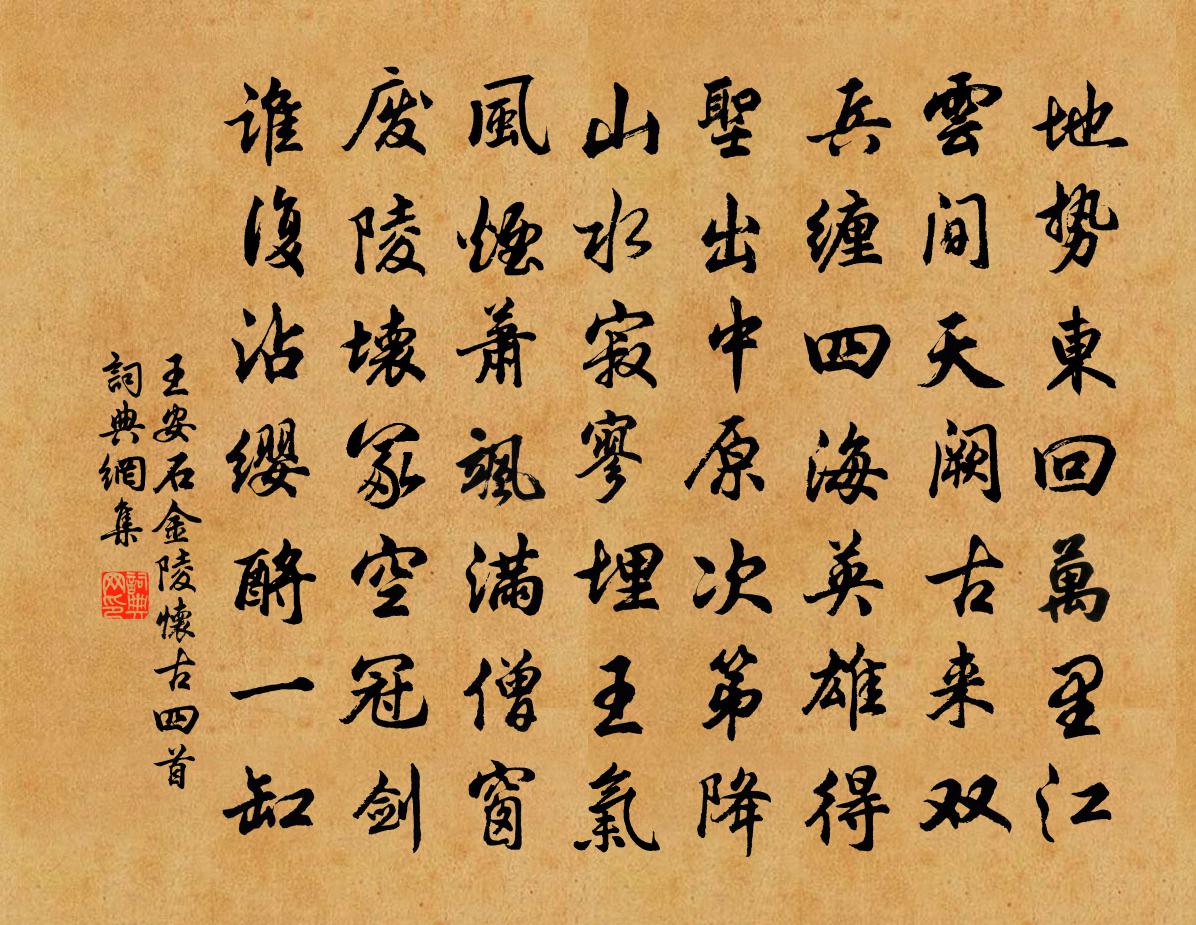 地势東回萬里江
雲间天阙古来双
兵缠四海英雄得
聖出中原次第降
山水寂寥埋王氣
風煙萧飒满僧窗
废陵壊冢空冠剑
谁復沾缨酹一缸
王安石金陵懷古四首
詞典網集
詞典网印